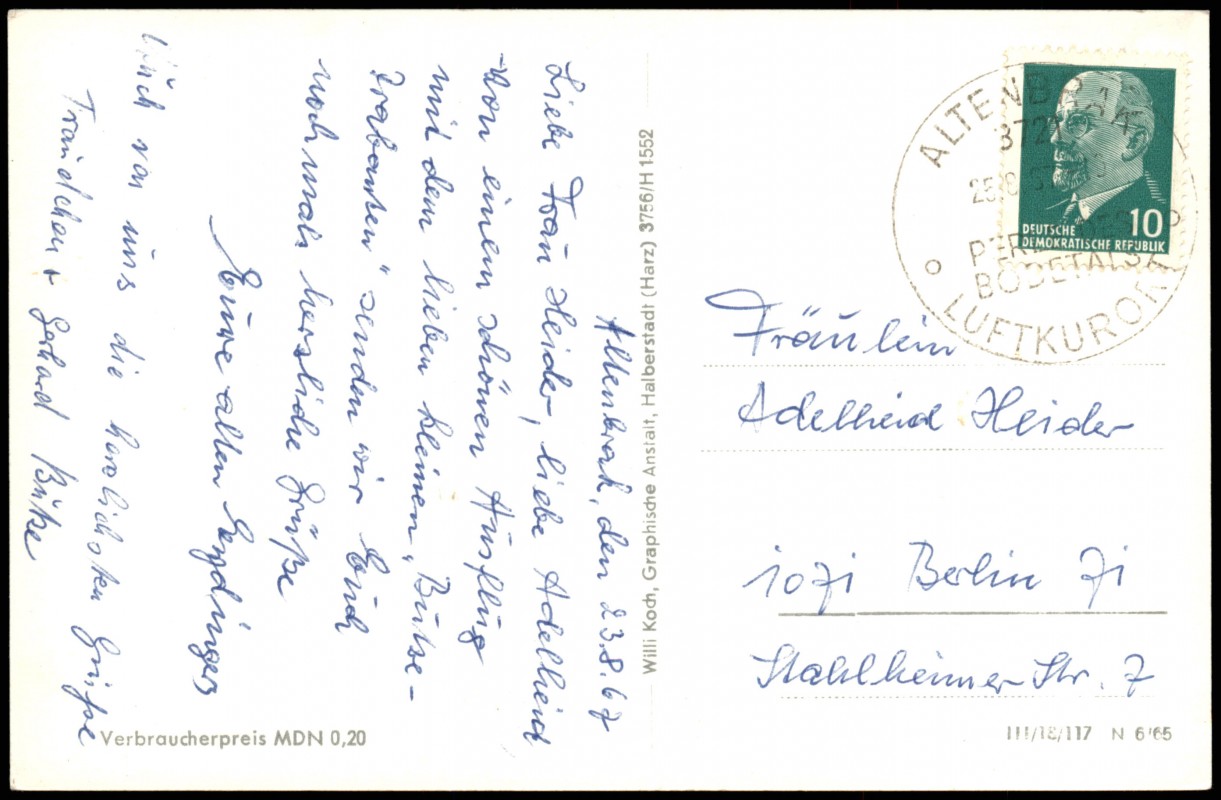 Altenbrak, den 23.8.67
Liebe Frau Heider, liebe Adelheid
Von einem schönen Ausflug
mit dem lieben kleinen "Butse-
Trabanten" senden wir Euch
nochmals herzliche Grüße
Eure alten
Auch von uns die herzlichsten Grüße
Traudchen + Gerhard
Verbraucherpreis MDN 0,20
Willi Koch, Graphische Anstalt, Halberstadt (Harz) 3756/H 1552
ALTENBRAK
3721
DEUTSCHE 10
DEMOKRATISCHE REPUBLIK
PERLE DES
BODETALS
LUFTKURORT
Fräulein
Adelheid Heider
1071 Berlin 71
Stahlheimer Str. 7
III/18/117 N 6/65